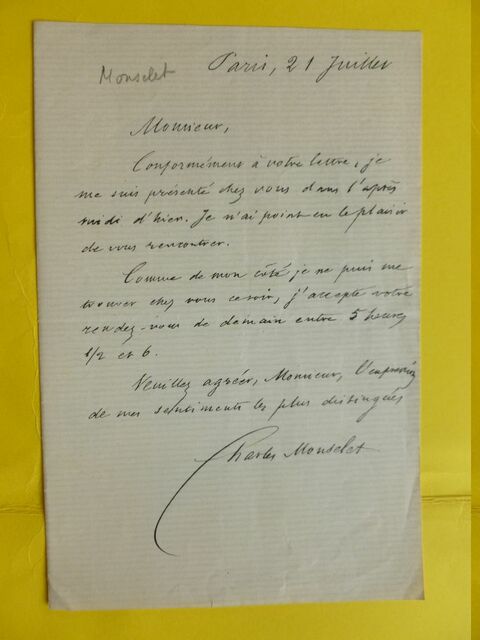 Monselet
Paris, 21 Juillet
Monsieur,
Conformément à votre lettre, je
me suis présenté chez vous dans l'après
midi d'hier. Je n'ai point eu le plaisir
de vous rencontrer.
Comme de mon côté je ne puis me
trouver chez vous ce soir, j'accepte votre
rendez-vous de demain entre 5 heures
1/2 et 6.
Veuillez agréer, Monsieur, l'expression
de mes sentiments les plus distingués
Charles Monselet